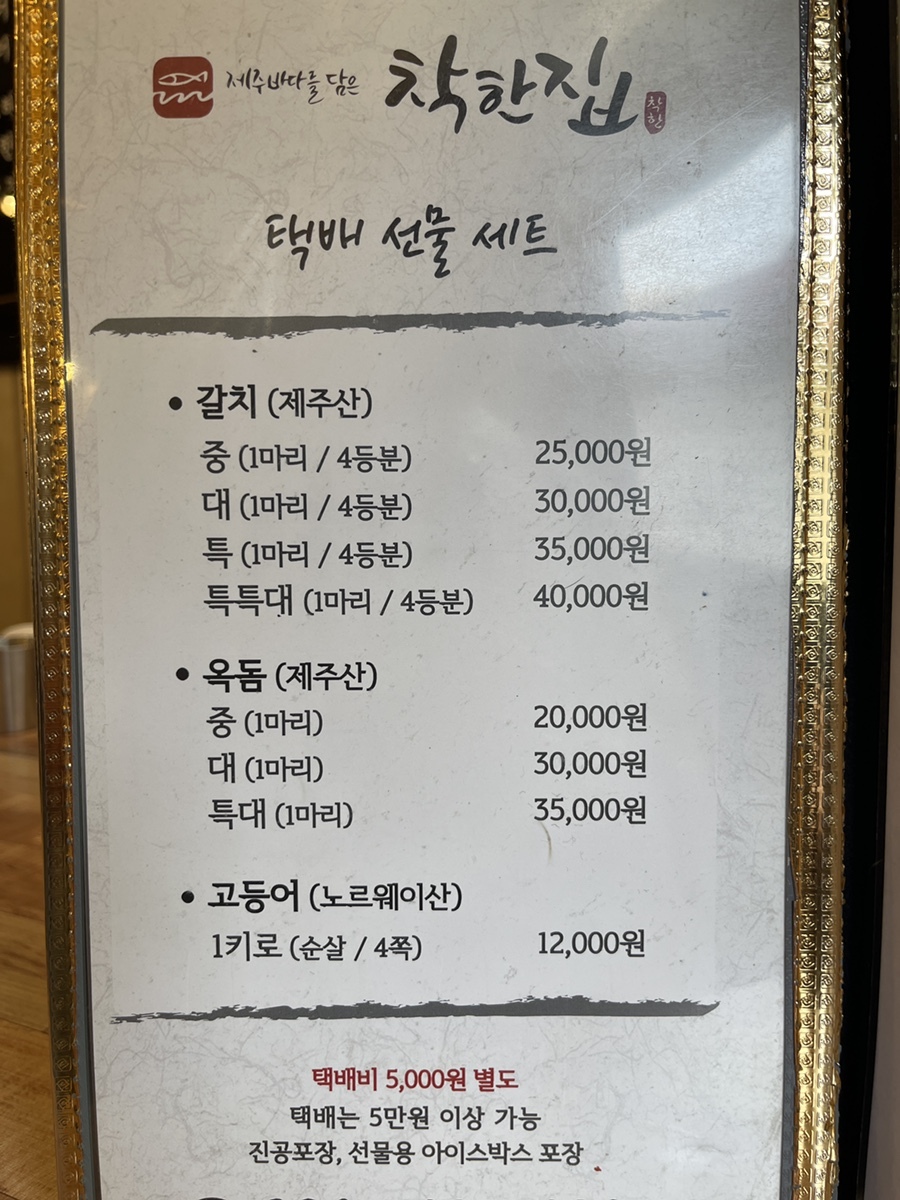 제주바다를 담은 착한집 착한
택배 선물 세트
• 갈치 (제주산)
중 (1마리 / 4등분) 25,000원
대 (1마리 / 4등분) 30,000원
특 (1마리 / 4등분) 35,000원
특특대 (1마리 / 4등분) 40,000원
• 옥돔 (제주산)
중 (1마리) 20,000원
대 (1마리) 30,000원
특대 (1마리) 35,000원
• 고등어 (노르웨이산)
1키로 (순살 / 4쪽) 12,000원
택배비 5,000원 별도
택배는 5만원 이상 가능
진공포장, 선물용 아이스박스 포장